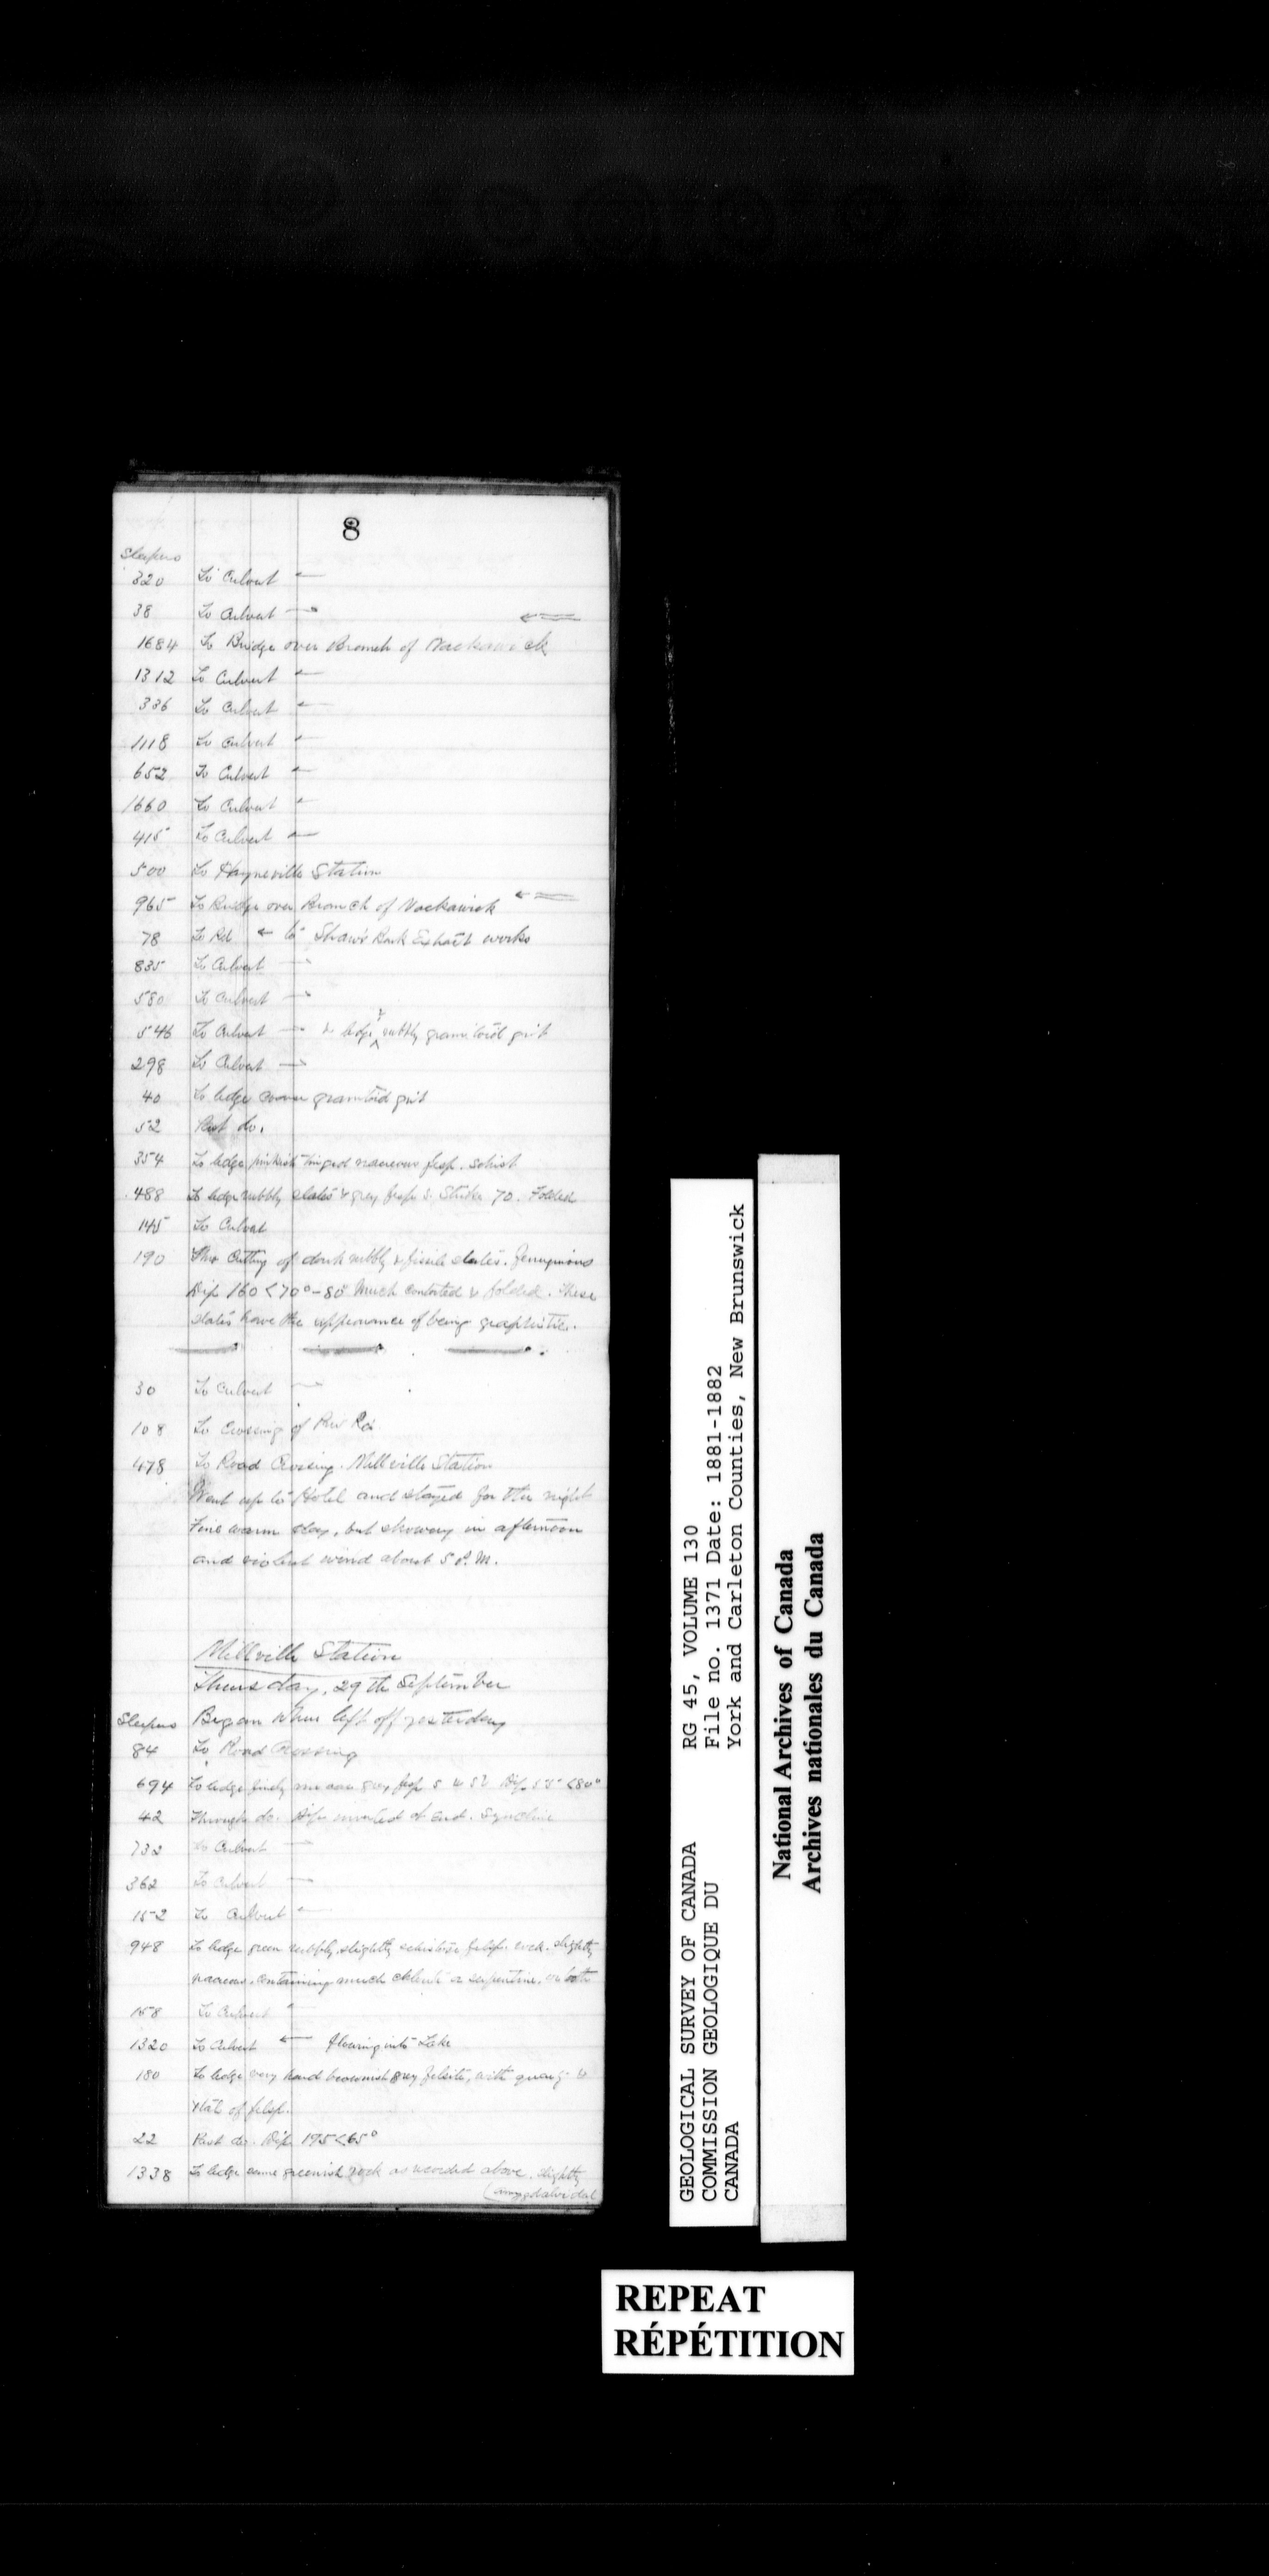 8
Sleepers
320 To Culvert ←
38 To Culvert →
1684 To Bridge over Branch of Nackawick ←
1312 To Culvert ←
336 To Culvert ←
1118 To Culvert ←
652 To Culvert ←
1660 To Culvert ←
415 To Culvert ←
500 To Hayneville Station
965 To Bridge over Branch of Nackawick ←
78 To Rd ← to Shaw's Bark Extract works
835 To Culvert →
580 To Culvert →
546 To Culvert → & ledge rubbly granitoid grit
298 To Culvert →
40 To ledge coarse granitoid grit
52 Past do.
354 To ledge pinkish tinged nacreous felsp. schist
488 To ledge rubbly slates & grey felsp s. Strike 70. Folded
145 To Culvert
190 Thro cutting of dark rubbly & fissile slates. Ferruginous
Dip 160 < 70° - 80° Much contorted & folded. These
slates have the appearance of being graphitic.
30 To Culvert →
108 To Crossing of Rd
478 To Road Crossing. Millville Station
Went up to Hotel and stayed for the night
Fine warm day, but showery in afternoon
and violent wind about 5 P.M.
Millville Station
Thursday, 29th September
Sleepers Began where left off yesterday
84 To Road Crossing
694 To ledge finely grey felsp s Dip <80°
42 Through do. Dip inverted at end. Syncline
732 To Culvert →
362 To Culvert →
152 To Culvert ←
948 To ledge green rubbly, slightly schistose felsp. rock. slightly
nacreous, containing much chlorite or serpentine, or both
158 To Culvert ←
1320 To Culvert ← flowing into Lake
180 To ledge very hard brownish grey felsite, with quartz &
xtals of felsp.
22 Past do. Dip 195 < 65°
1338 To ledge same greenish rock as recorded above, slightly
(amygdaloidal
GEOLOGICAL SURVEY OF CANADA RG 45, VOLUME 130
COMMISSION GEOLOGIQUE DU File no. 1371 Date: 1881-1882
CANADA York and Carleton Counties, New Brunswick
National Archives of Canada
Archives nationales du Canada
REPEAT
RÉPÉTITION